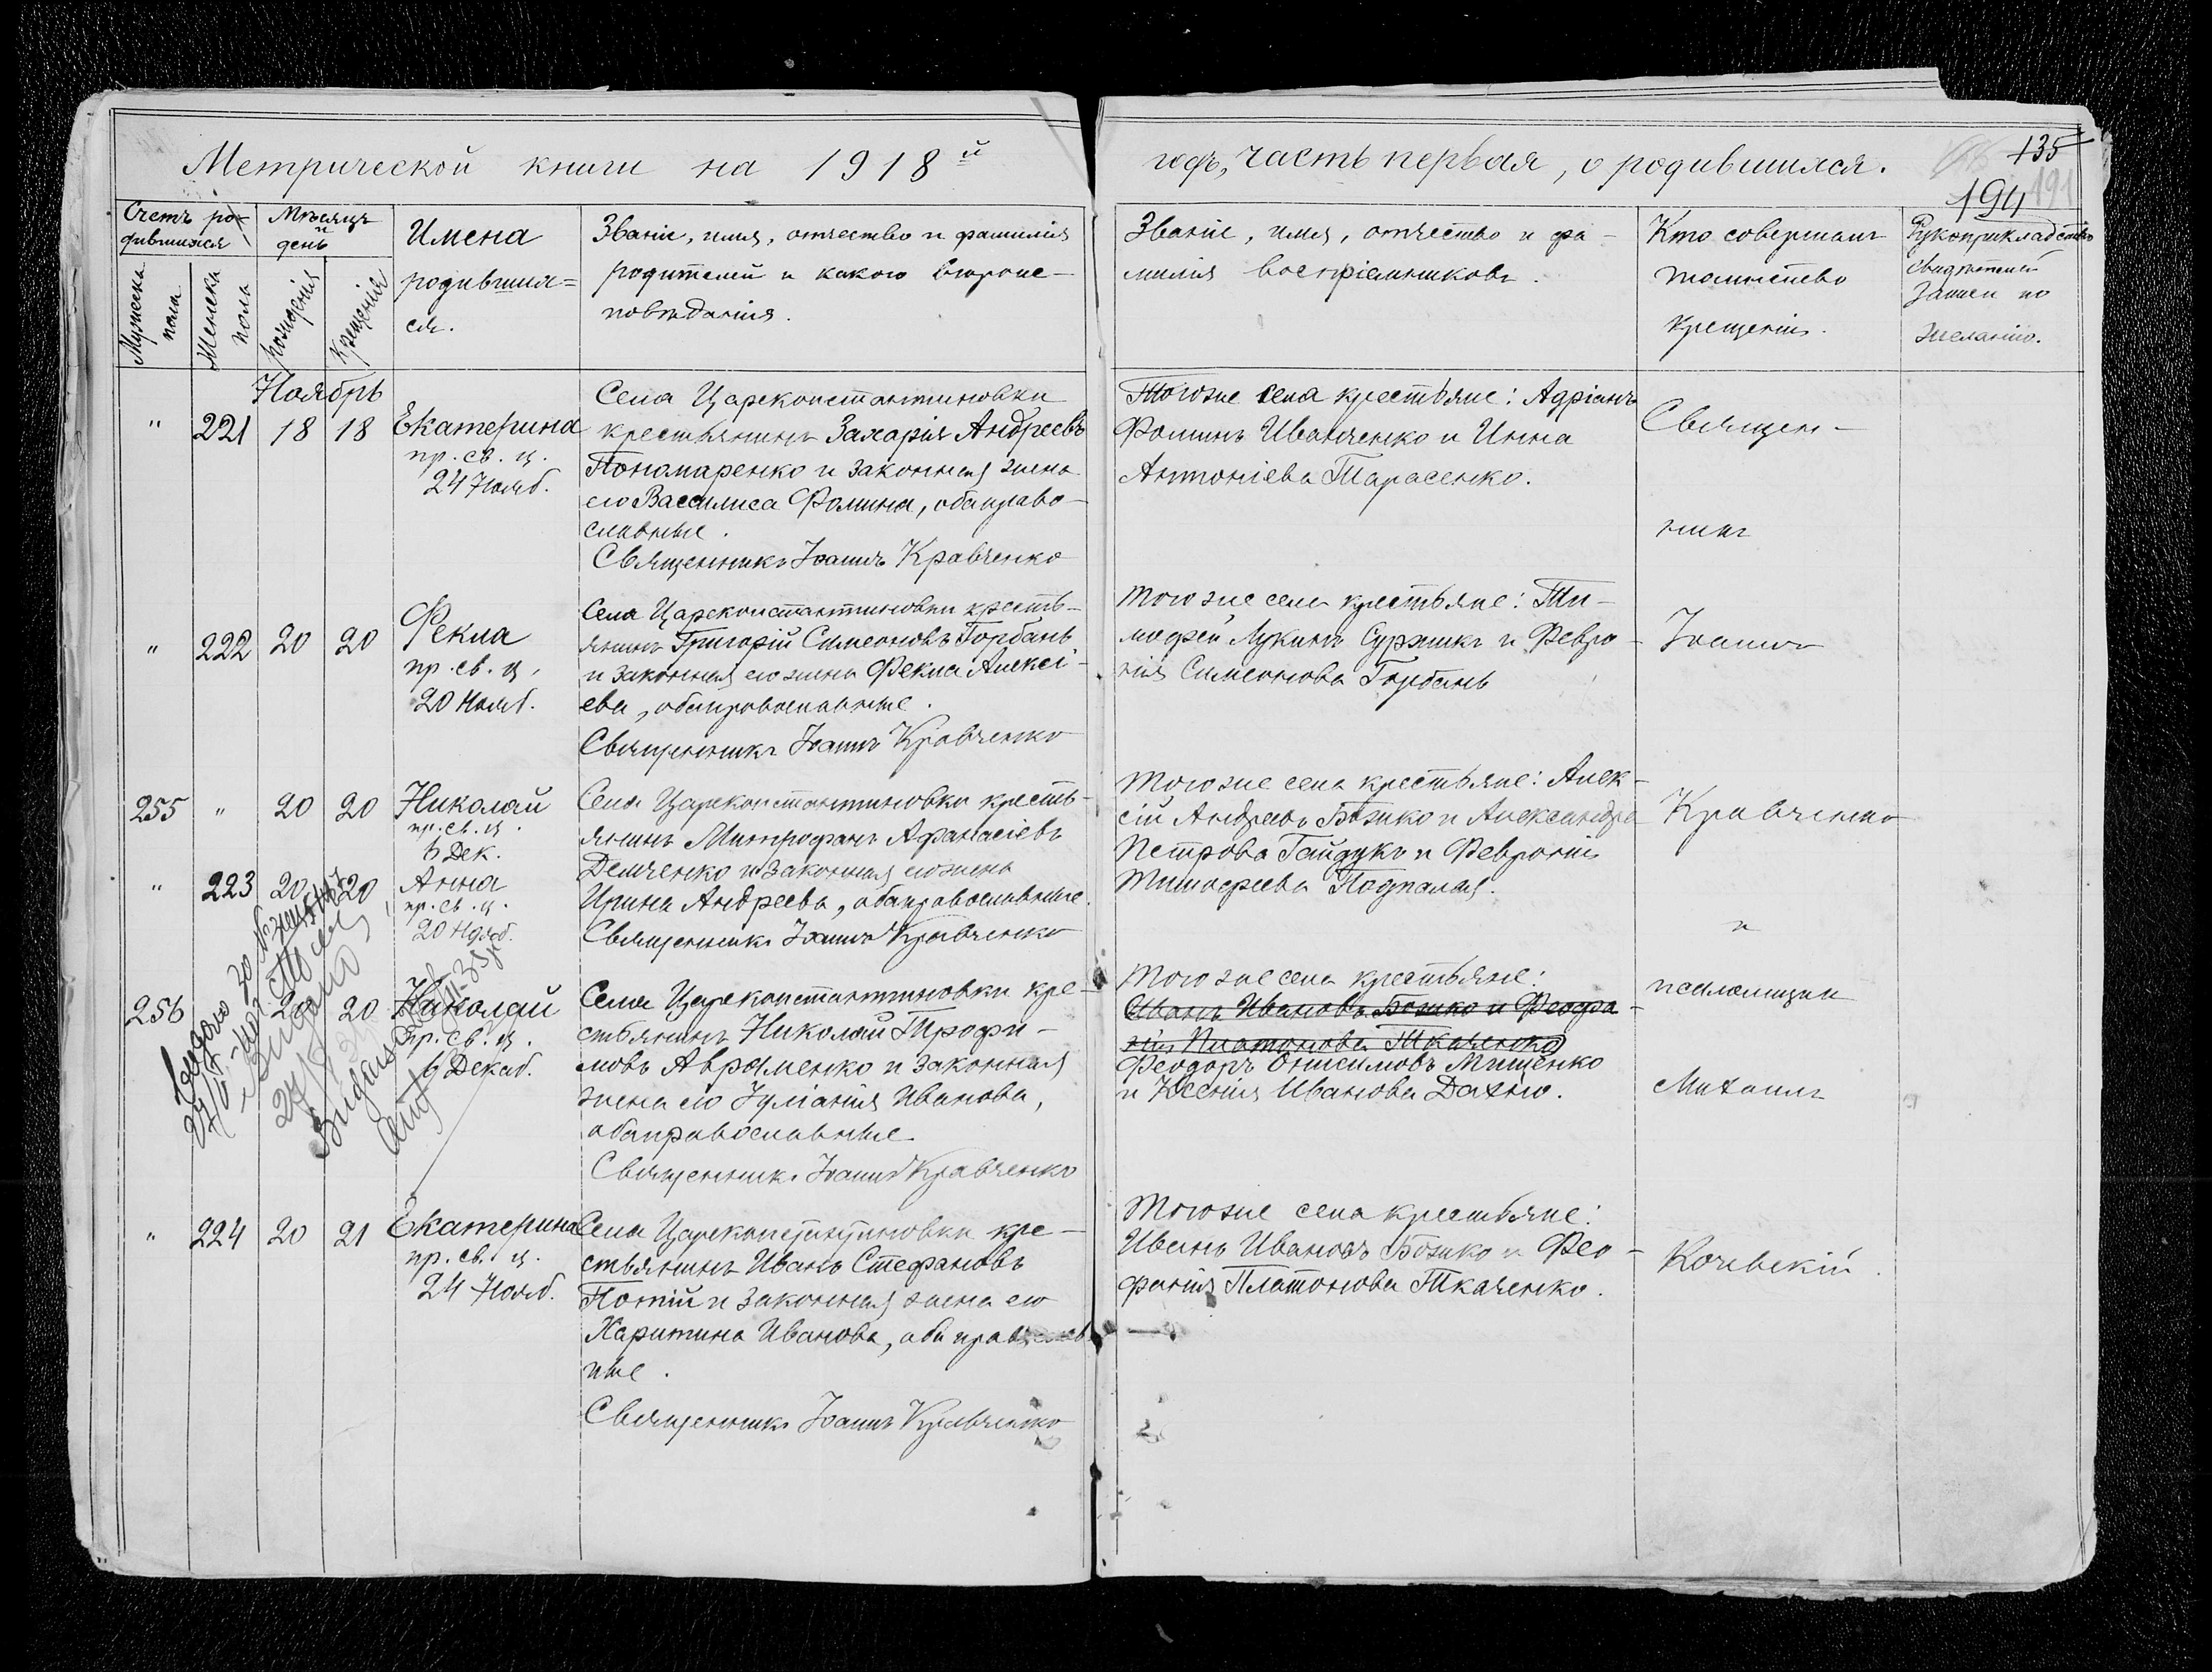 Метрической книги на 1918й
годъ, часть первая, о родившихся.
135
194
191
Счетъ ро-
дившихся
Мужеска пола
Женска пола
Мѣсяцъ
и
день
рожденія
крещенія
Имена
родивших=
ся.
Званіе, имя, отчество и фамилія
родителей и какого вѣроис-
повѣданія.
Званіе, имя, отчество и фа-
милія воспріемниковъ.
Кто совершалъ
таинство
крещенія.
Рукоприкладство
свидѣтелей
записи по
желанію.
Ноябрь
" 221 18 18 Екатерина
пр. св. ц.
24 Нояб.
Села Цареконстантиновки
крестьянинъ Захарія Андреевъ
Пономаренко и законная жена
его Василиса Фомина, оба право-
славные.
Священникъ Іоаннъ Кравченко
Того же села крестьяне: Адріанъ
Фоминъ Иванченко и Инна
Антоніева Тарасенко.
" 222 20 20 Фекла
пр. св. ц.
20 Нояб.
Села Цареконстантиновки кресть-
янинъ Григорій Симеоновъ Горбань
и законная его жена Фекла Алексі-
ева, оба православные.
Священникъ Іоаннъ Кравченко
Того же села крестьяне: Ти-
мофей Лукинъ Суржикъ и Февро-
нія Симеонова Горбань
255 " 20 20 Николай
пр. св. ц.
6 Дек.
" 223 20 20 Анна
пр. св. ц.
20 Нояб.
Села Цареконстантиновки кресть-
янинъ Митрофанъ Афанасіевъ
Демченко и законная его жена
Ирина Андреева, оба православные.
Священникъ Іоаннъ Кравченко
Того же села крестьяне: Алек-
сій Андреевъ Божко и Александра
Петрова Гайдукъ и Февронія
Тимофеева Подпалая.
256 20 20 Николай
пр. св. ц.
6 Декаб.
Села Цареконстантиновки кре-
стьянинъ Николай Трофи-
мовъ Авраменко и законная
жена его Іуліанія Иванова,
оба православные.
Священникъ Іоаннъ Кравченко
Того же села крестьяне:
Иванъ Ивановъ Божко и Феофа-
нія Платонова Ткаченко
Феодоръ Онисимовъ Мищенко
и Ксенія Иванова Дахно.
" 224 20 21 Екатерина
пр. св. ц.
24 Нояб.
Села Цареконстантиновки кре-
стьянинъ Иванъ Стефановъ
Потій и законная жена его
Харитина Иванова, оба православ
ные.
Священникъ Іоаннъ Кравченко
Того же села крестьяне:
Иванъ Ивановъ Божко и Фео-
фанія Платонова Ткаченко.
Священ-
никъ
Іоаннъ
Кравченко
и
псаломщикъ
Михаилъ
Кочевскій.